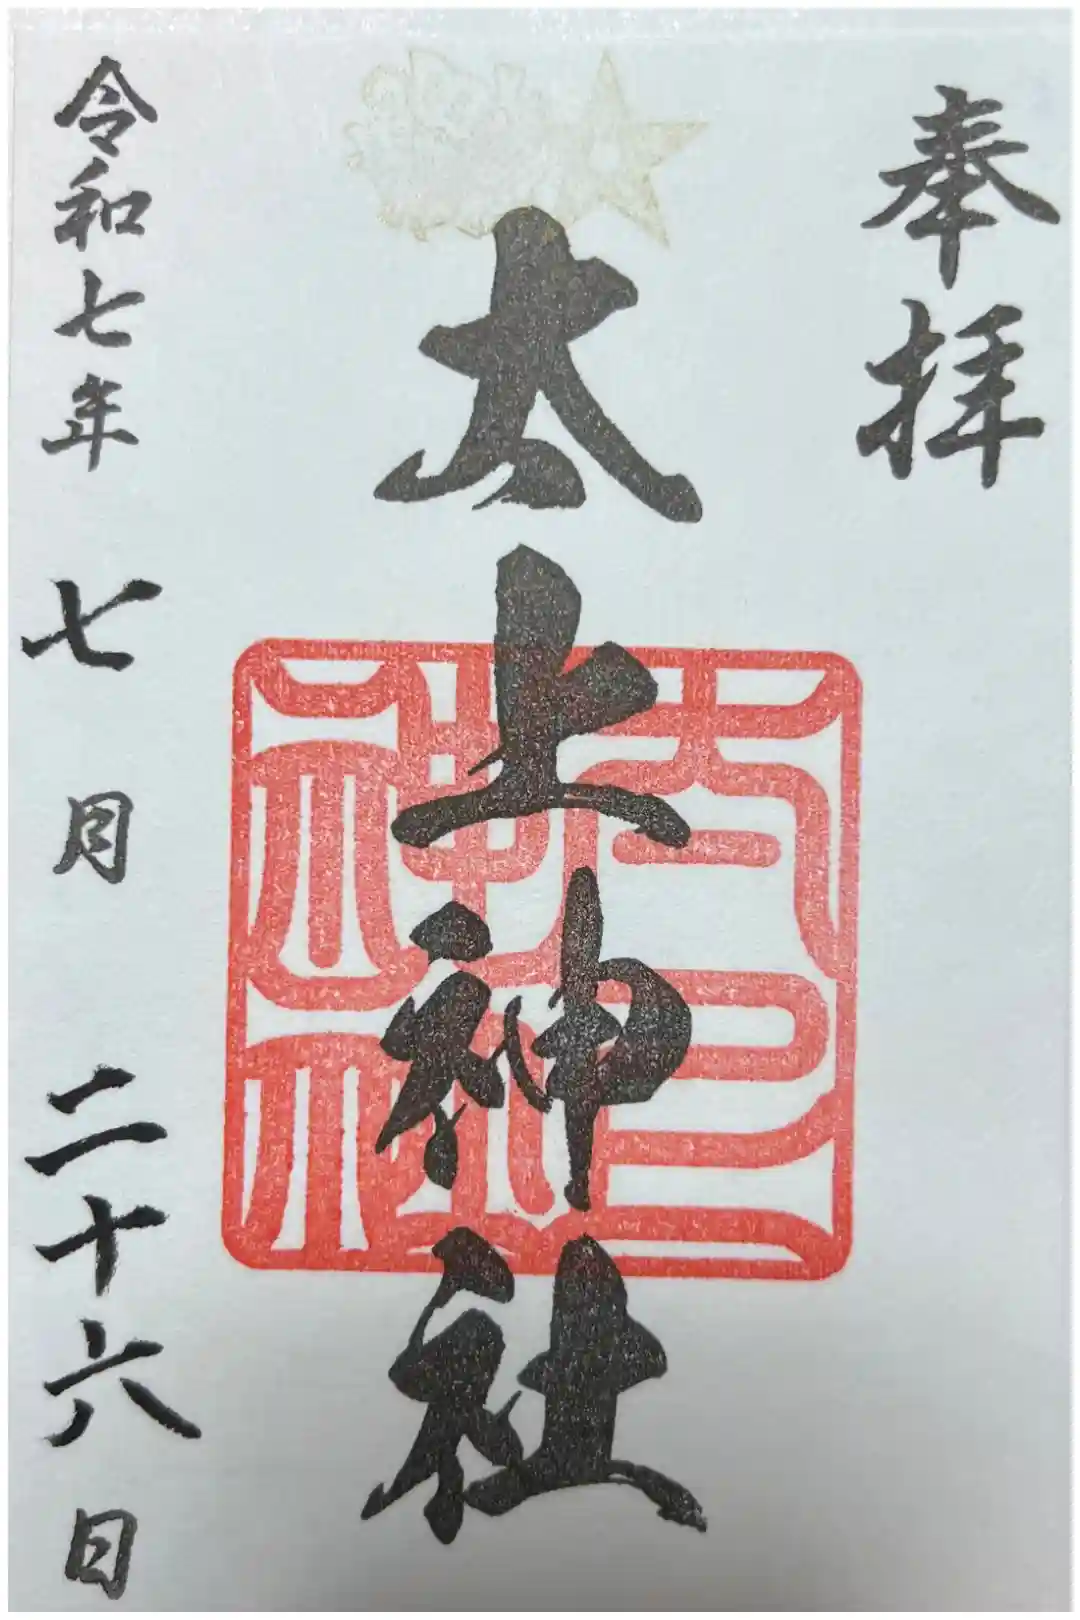 奉拝
太上神社
令和七年七月二十六日